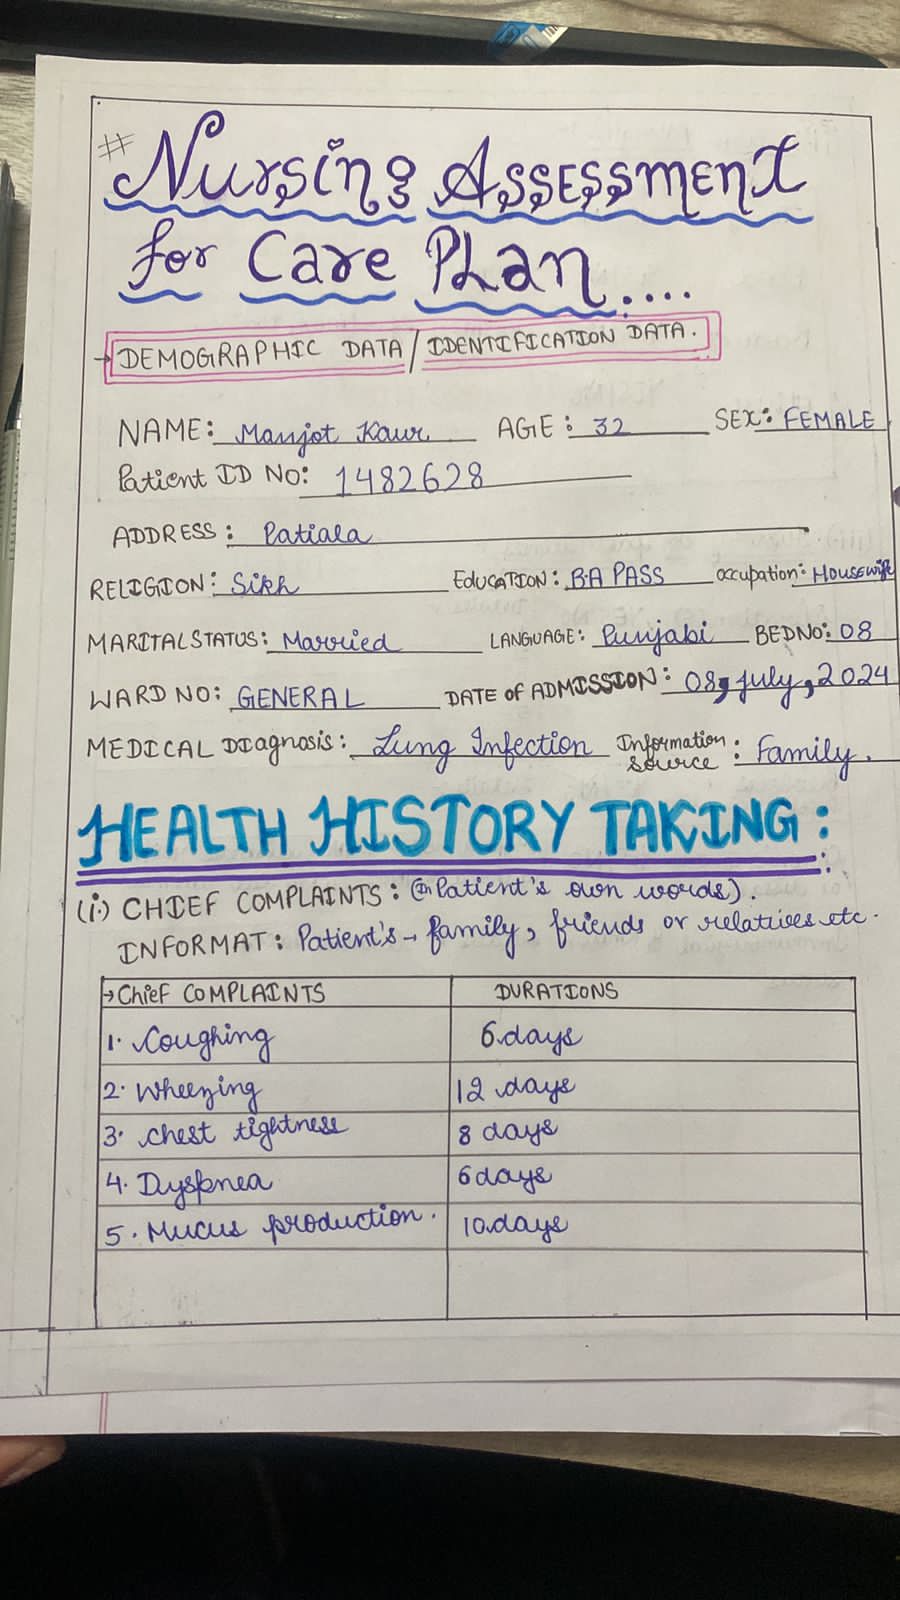 # Nursing Assessment
for Care Plan....
→ DEMOGRAPHIC DATA / IDENTIFICATION DATA.
NAME: Manjot Kaur AGE: 32 SEX: FEMALE
Patient ID NO: 1482628
ADDRESS: Patiala
RELIGION: Sikh EDUCATION: B.A PASS occupation: Housewife
MARITAL STATUS: Married LANGUAGE: Punjabi BED NO: 08
WARD NO: GENERAL DATE of ADMISSION: 08, july, 2024
MEDICAL Diagnosis: Lung Infection Information source: Family.
HEALTH HISTORY TAKING:
(i.) CHIEF COMPLAINTS: (In Patient's own words).
INFORMAT: Patient's → family, friends or relatives etc.
→ Chief COMPLAINTS DURATIONS
1. Coughing 6 days
2. Wheezing 12 days
3. chest tightness 8 days
4. Dyspnea 6 days
5. Mucus production. 10 days